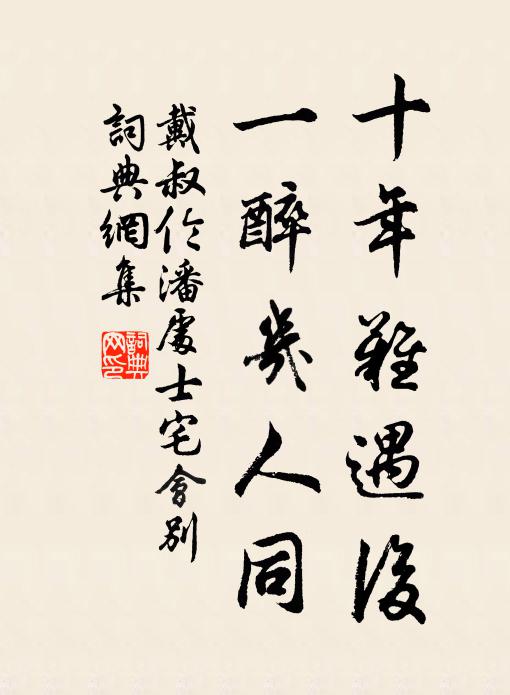 十年難遇後
一醉幾人同
戴叔伦潘處士宅會別
詞典網集
詞典网印